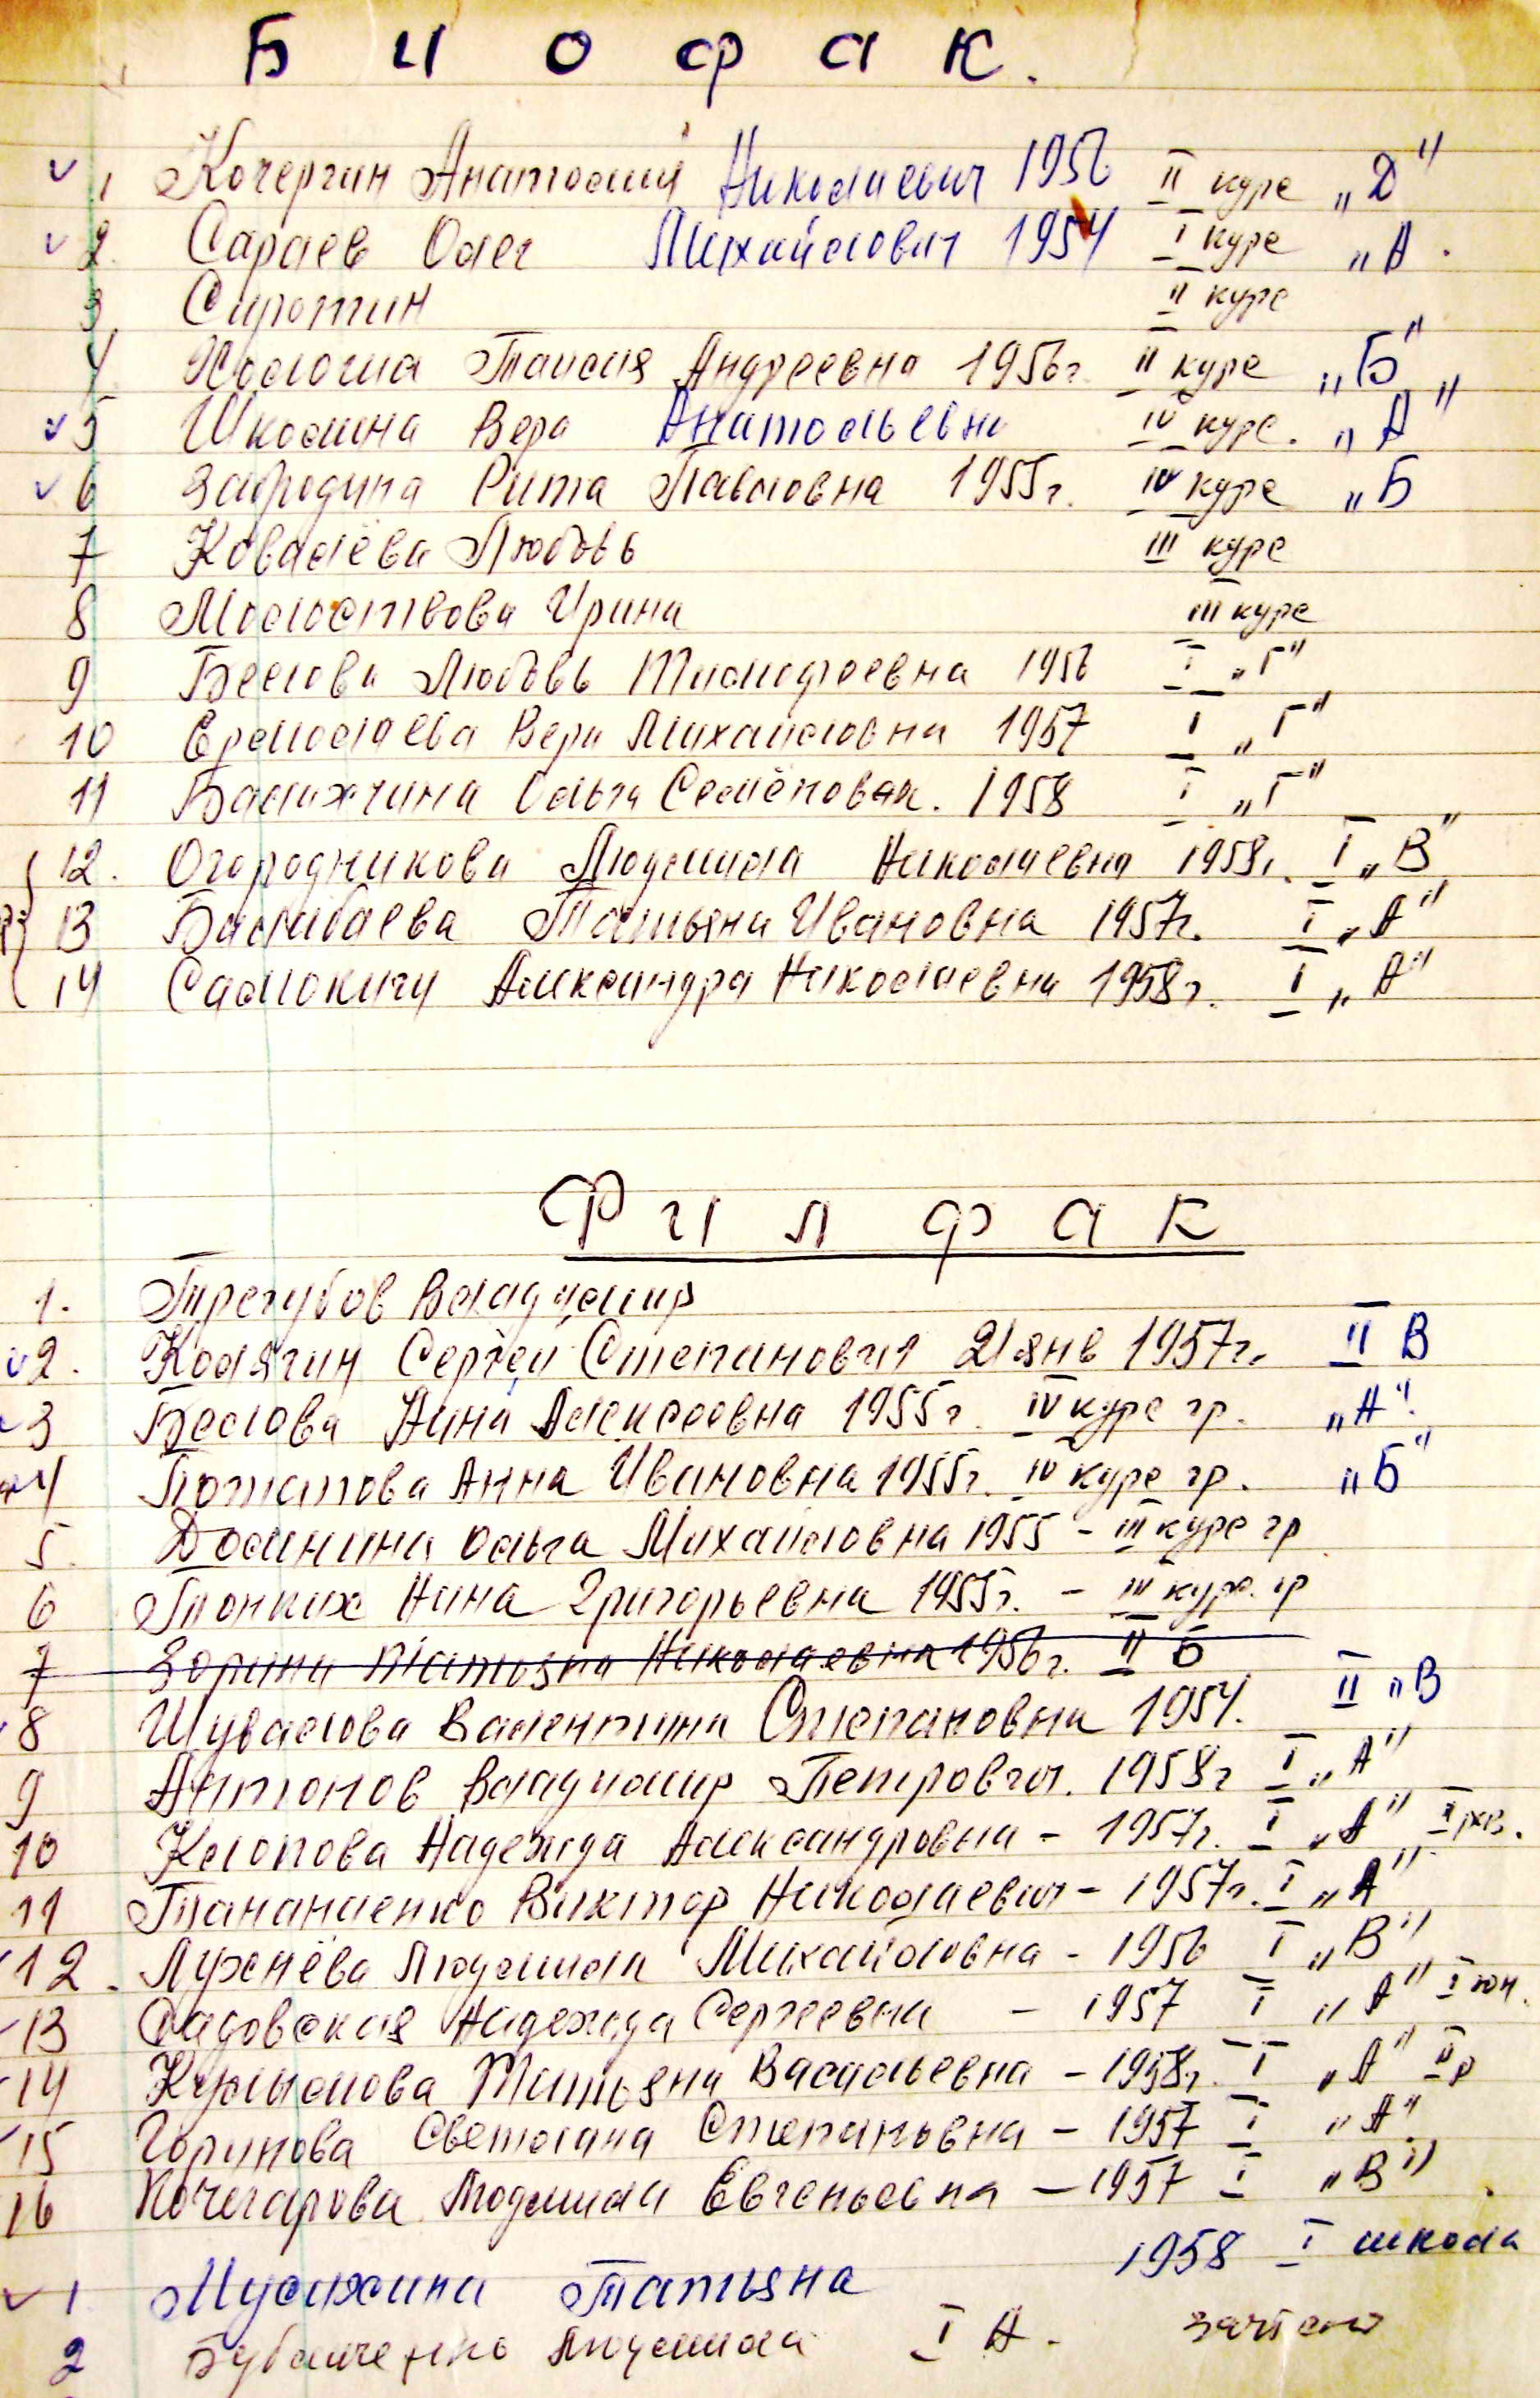 Биофак.
1 Кочергин Анатолий Николаевич 1956 II курс „Д"
2. Сараев Олег Михайлович 1954 I курс „А".
3 Сиротин II курс
4 Таисия Андреевна 1956г. II курс „Б"
5 Школина Вера Анатольевна IV курс. „А"
6 Забродина Рита Павловна 1955г. IV курс „Б
7 Ковалёва Любовь III курс
8 Молоствова Ирина III курс
9 Белова Любовь Тимофеевна 1956 I „Г"
10 Ермолаева Вера Михайловна 1957 I „Г"
11 Ольга Семёновна. 1958 I „Г"
12. Огородникова Людмила Николаевна 1958г. I „В"
13 Балабаева Татьяна Ивановна 1957г. I „А"
14 Самокиш Александра Николаевна 1958г. I „А"
Филфак
1. Трегубов Владимир
2. Колягин Сергей Степанович 21 янв 1957г. II В
3 Белова Нина Алексеевна 1955г. IV курс гр. „А".
4 Потатова Анна Ивановна 1955г. IV курс гр. „Б"
5. Долинина Ольга Михайловна 1955 - III курс гр
6 Тонких Нина Григорьевна 1955г. - III курс. гр
7 Зорина Татьяна Николаевна 1956г. II Б
8 Шувалова Валентина Степановна 1954. II „В
9 Антонов Владимир Петрович. 1958г I „А"
10 Клопова Надежда Александровна - 1957г. I „А"
11 Виктор Николаевич - 1957г. I „А"
12. Лужнёва Людмила Михайловна - 1956 I „В"
13 Садовская Надежда Сергеевна - 1957 I „А" I юн.
14 Крылова Татьяна Васильевна - 1958г. I „А" II р
15 Горинова Светлана Степановна - 1957 I „А"
16 Кочегарова Людмила Евгеньевна - 1957 I „В"
1 Мусихина Татьяна 1958 I школа
2 Людмила I А.